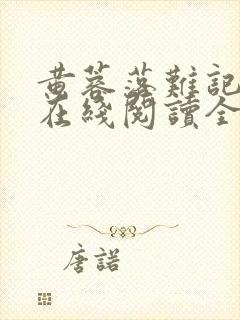 黄蓉落難記
在綫閱讀全
唐諾